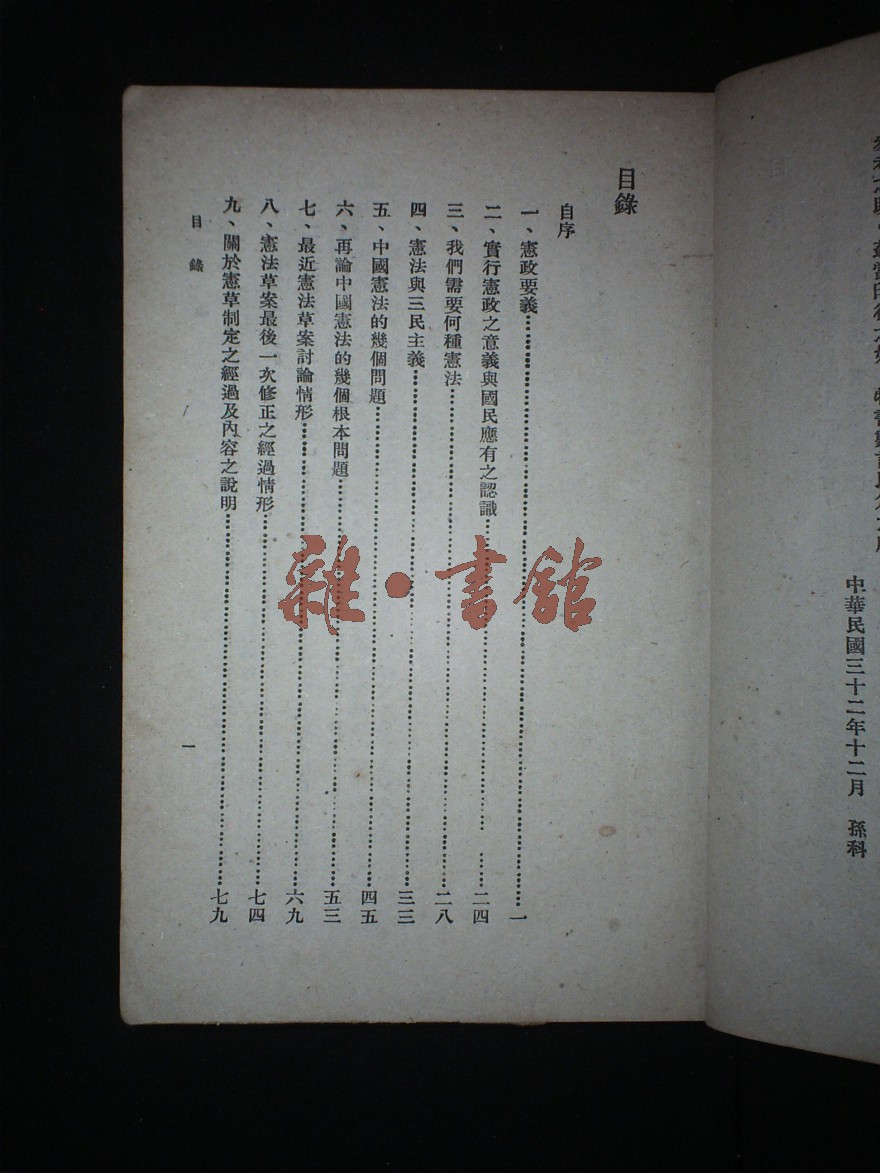 中華民國三十二年十二月 孫科
目錄
自序
一、憲政要義……一
二、實行憲政之意義與國民應有之認識……二四
三、我們需要何種憲法……二八
四、憲法與三民主義……三三
五、中國憲法的幾個問題……四五
六、再論中國憲法的幾個根本問題……五三
七、最近憲法草案討論情形……六九
八、憲法草案最後一次修正之經過情形……七四
九、關於憲草制定之經過及內容之說明……七九
目錄 一
雜·書館